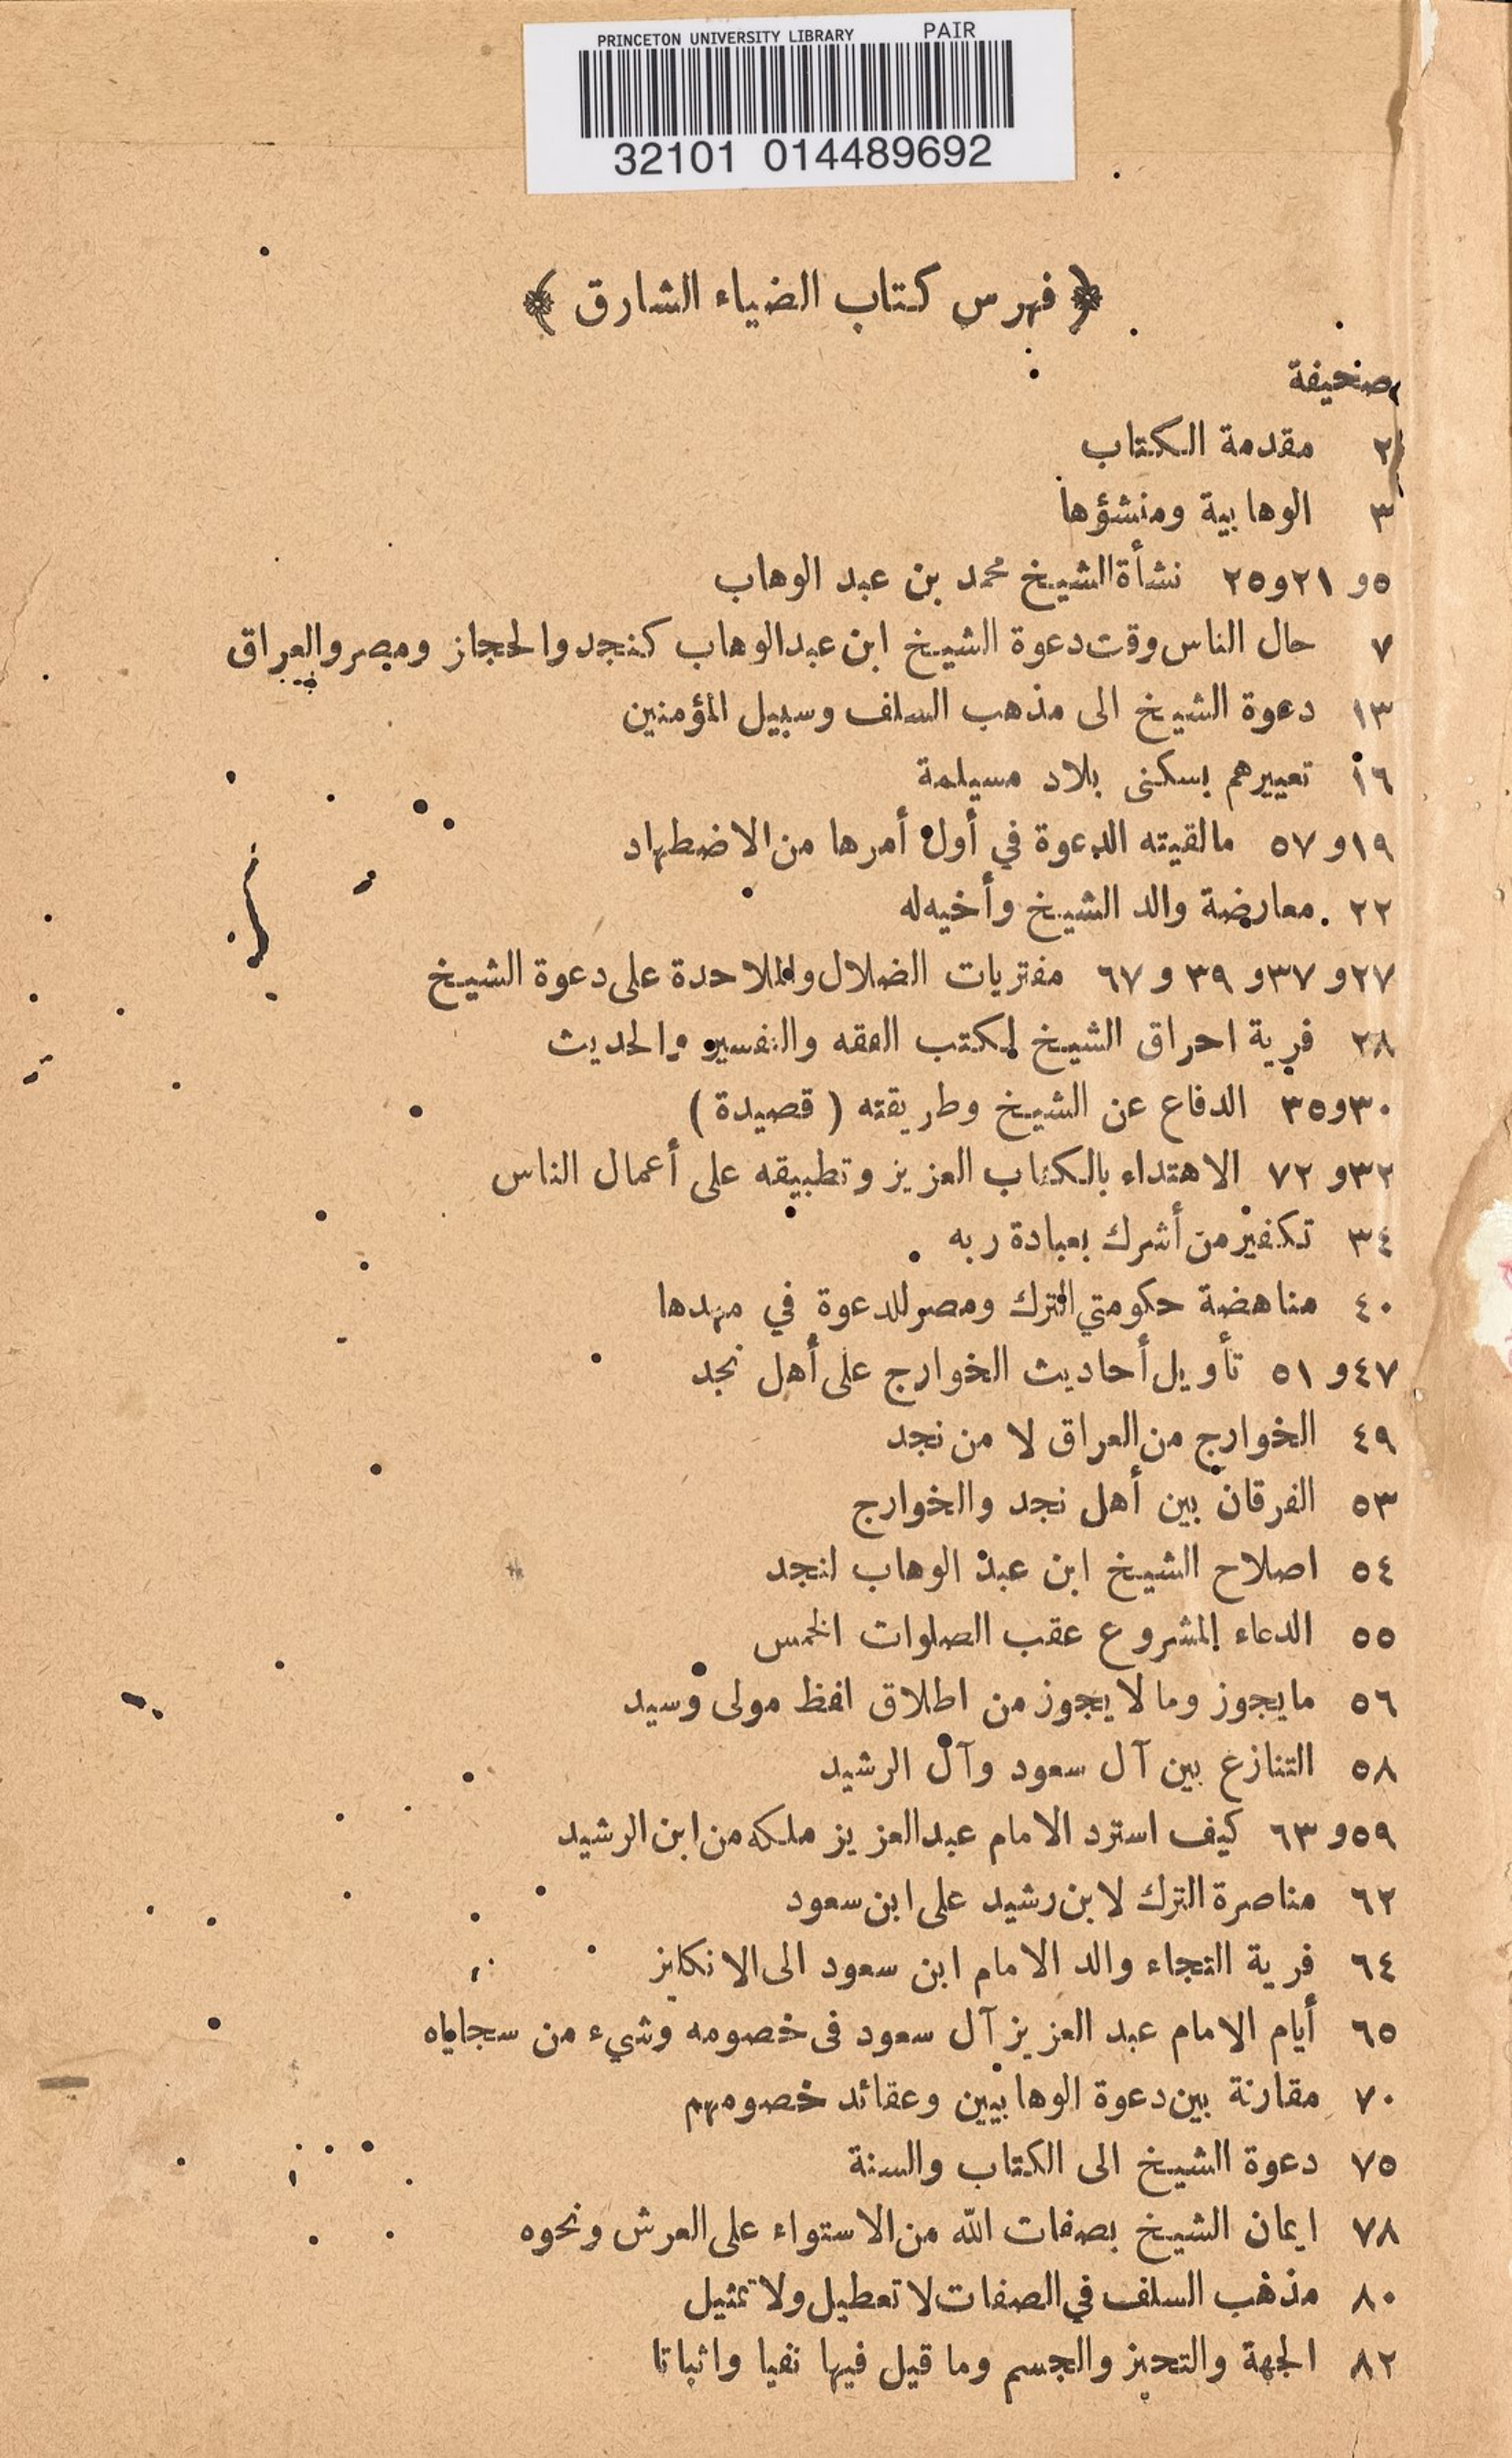 PRINCETON UNIVERSITY LIBRARY PAIR
32101 014489692
﴿ فهرس كتاب الضياء الشارق ﴾
صحيفة
٢ مقدمة الكتاب
٣ الوهابية ومنشؤها
٥ و ٢١ و ٢٥ نشأة الشيخ محمد بن عبد الوهاب
٧ حال الناس وقت دعوة الشيخ ابن عبد الوهاب كنجد والحجاز ومصر والعراق
١٣ دعوة الشيخ الى مذهب السلف وسبيل المؤمنين
١٦ تعييرهم بسكنى بلاد مسيلمة
١٩ و ٥٧ مالقيته الدعوة في أول أمرها من الاضطهاد
٢٢ معارضة والد الشيخ وأخيه له
٢٧ و ٣٧ و ٣٩ و ٦٧ مفتريات الضلال والملاحدة على دعوة الشيخ
٢٨ فرية احراق الشيخ لكتب الفقه والتفسير والحديث
٣٠ و ٣٥ الدفاع عن الشيخ وطريقته ( قصيدة )
٣٢ و ٧٢ الاهتداء بالكتاب العزيز وتطبيقه على أعمال الناس
٣٤ تكفير من أشرك بعبادة ربه
٤٠ مناهضة حكومتي الترك ومصر للدعوة في مهدها
٤٧ و ٥١ تأويل أحاديث الخوارج على أهل نجد
٤٩ الخوارج من العراق لا من نجد
٥٣ الفرقان بين أهل نجد والخوارج
٥٤ اصلاح الشيخ ابن عبد الوهاب لنجد
٥٥ الدعاء المشروع عقب الصلوات الخمس
٥٦ مايجوز وما لا يجوز من اطلاق لفظ مولى وسيد
٥٨ التنازع بين آل سعود وآل الرشيد
٥٩ و ٦٣ كيف استرد الامام عبد العزيز ملكه من ابن الرشيد
٦٢ مناصرة الترك لابن رشيد على ابن سعود
٦٤ فرية التجاء والد الامام ابن سعود الى الانكليز
٦٥ أيام الامام عبد العزيز آل سعود فى خصومه وشيء من سجاياه
٧٠ مقارنة بين دعوة الوهابيين وعقائد خصومهم
٧٥ دعوة الشيخ الى الكتاب والسنة
٧٨ ايمان الشيخ بصفات الله من الاستواء على العرش ونحوه
٨٠ مذهب السلف في الصفات لا تعطيل ولا تمثيل
٨٢ الجهة والتحيز والجسم وما قيل فيها نفيا واثباتا